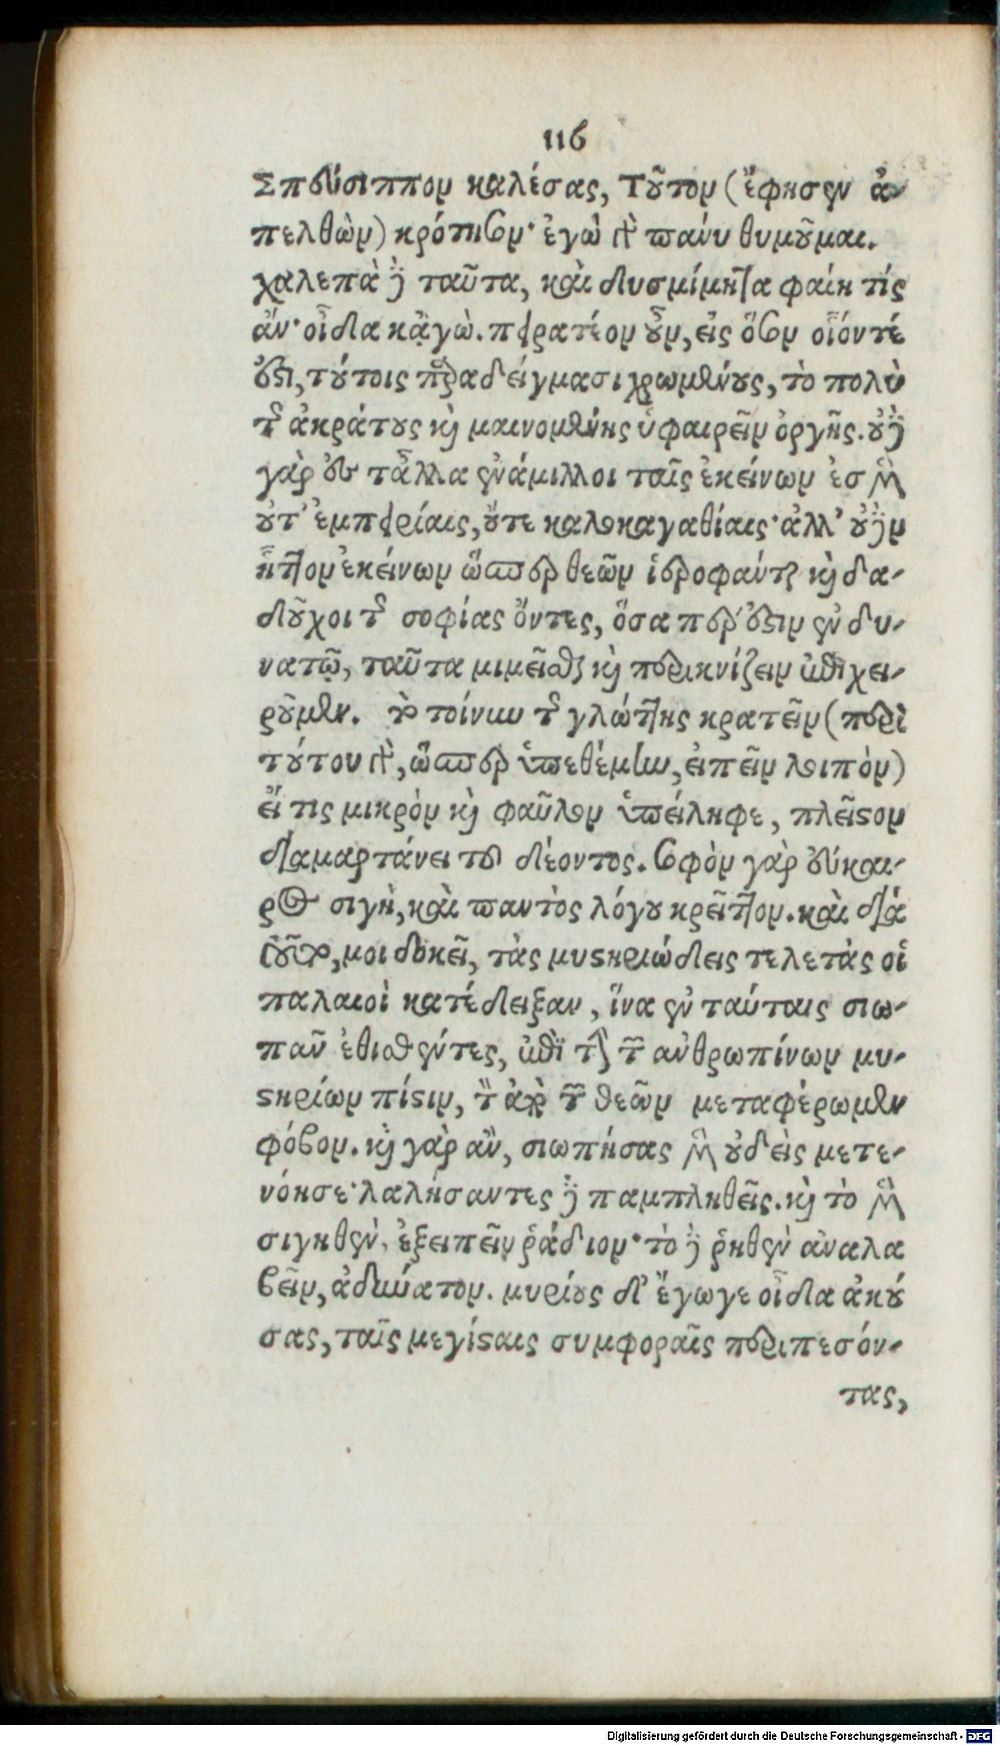 116
Σπεύσιππον καλέσας, Τοῦτον (ἔφησεν ἀ-
πελθὼν) κρότησον· ἐγὼ γὰρ πάνυ θυμοῦμαι.
χαλεπὰ δὲ ταῦτα, καὶ δυσμίμητα φαίη τίς
ἄν· οἶδα κᾀγὼ. πειρατέον οὖν, εἰς ὅσον οἷόντέ
ἐστι, τούτοις παραδείγμασι χρωμένους, τὸ πολὺ
τῆς ἀκράτους καὶ μαινομένης ὑφαιρεῖν ὀργῆς. οὐδὲ
γὰρ εἰς τἆλλα ἐνάμιλλοι ταῖς ἐκείνων ἐσμὲν
οὔτ' ἐμπειρίαις, οὔτε καλοκαγαθίαις· ἀλλ' οὐδὲν
ἧττον ἐκείνων ὥσπερ θεῶν ἱεροφάνται καὶ δα-
δοῦχοι τῆς σοφίας ὄντες, ὅσα περ ἐστὶν ἐν δυ-
νατῷ, ταῦτα μιμεῖσθαι καὶ περικνίζειν ἐπιχει-
ροῦμεν. τὸ τοίνυν τῆς γλώττης κρατεῖν (περὶ
τούτου γὰρ, ὥσπερ ὑπεθέμην, εἰπεῖν λοιπὸν)
εἴ τις μικρὸν καὶ φαῦλον ὑπείληφε, πλεῖστον
διαμαρτάνει τοῦ δέοντος. σοφὸν γὰρ εὔκαι-
ρος σιγὴ, καὶ παντὸς λόγου κρεῖττον. καὶ διὰ
τοῦτο, μοι δοκεῖ, τὰς μυστηριώδεις τελετὰς οἱ
παλαιοὶ κατέδειξαν, ἵνα ἐν ταύταις σιω-
πᾶν ἐθισθέντες, ἐπὶ τὴν τῶν ἀνθρωπίνων μυ-
στηρίων πίστιν, τὸν ἀπὸ τῶν θεῶν μεταφέρωμεν
φόβον. καὶ γὰρ αὖ, σιωπήσας μὲν οὐδεὶς μετε-
νόησε· λαλήσαντες δὲ παμπληθεῖς. καὶ τὸ μὲν
σιγηθὲν, ἐξειπεῖν ῥᾴδιον· τὸ δὲ ῥηθὲν ἀναλα
βεῖν, ἀδύνατον. μυρίους δ' ἔγωγε οἶδα ἀκού
σας, ταῖς μεγίσταις συμφοραῖς περιπεσόν-
τας,
Digitalisierung gefördert durch die Deutsche Forschungsgemeinschaft - DFG